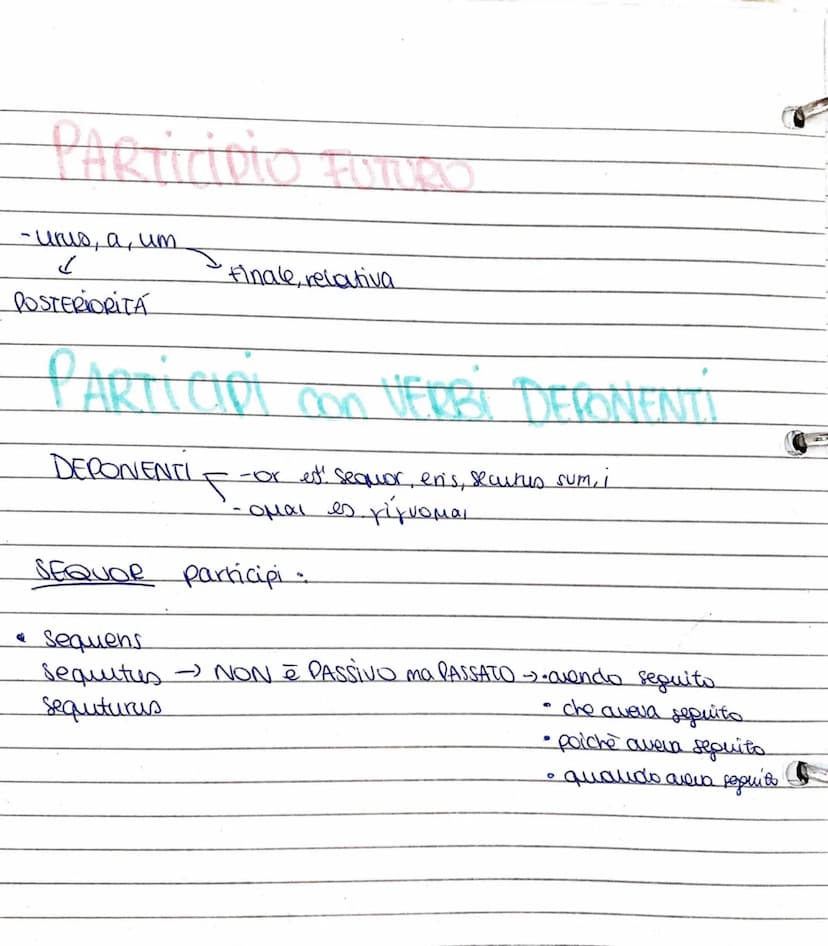 PARTICIPIO FUTURO
-urus, a, um
finale, relativa
POSTERIORITÁ
PARTICIPI con VERBI DEPONENTI
DEPONENTI -or es. sequor, eris, secutus sum, i
-ομαι es. γίγνομαι
SEQUOR participi:
• sequens
sequutus → NON è PASSIVO ma PASSATO → • avendo seguito
sequuturus • che aveva seguito
• poichè aveva seguito
• quando aveva seguito